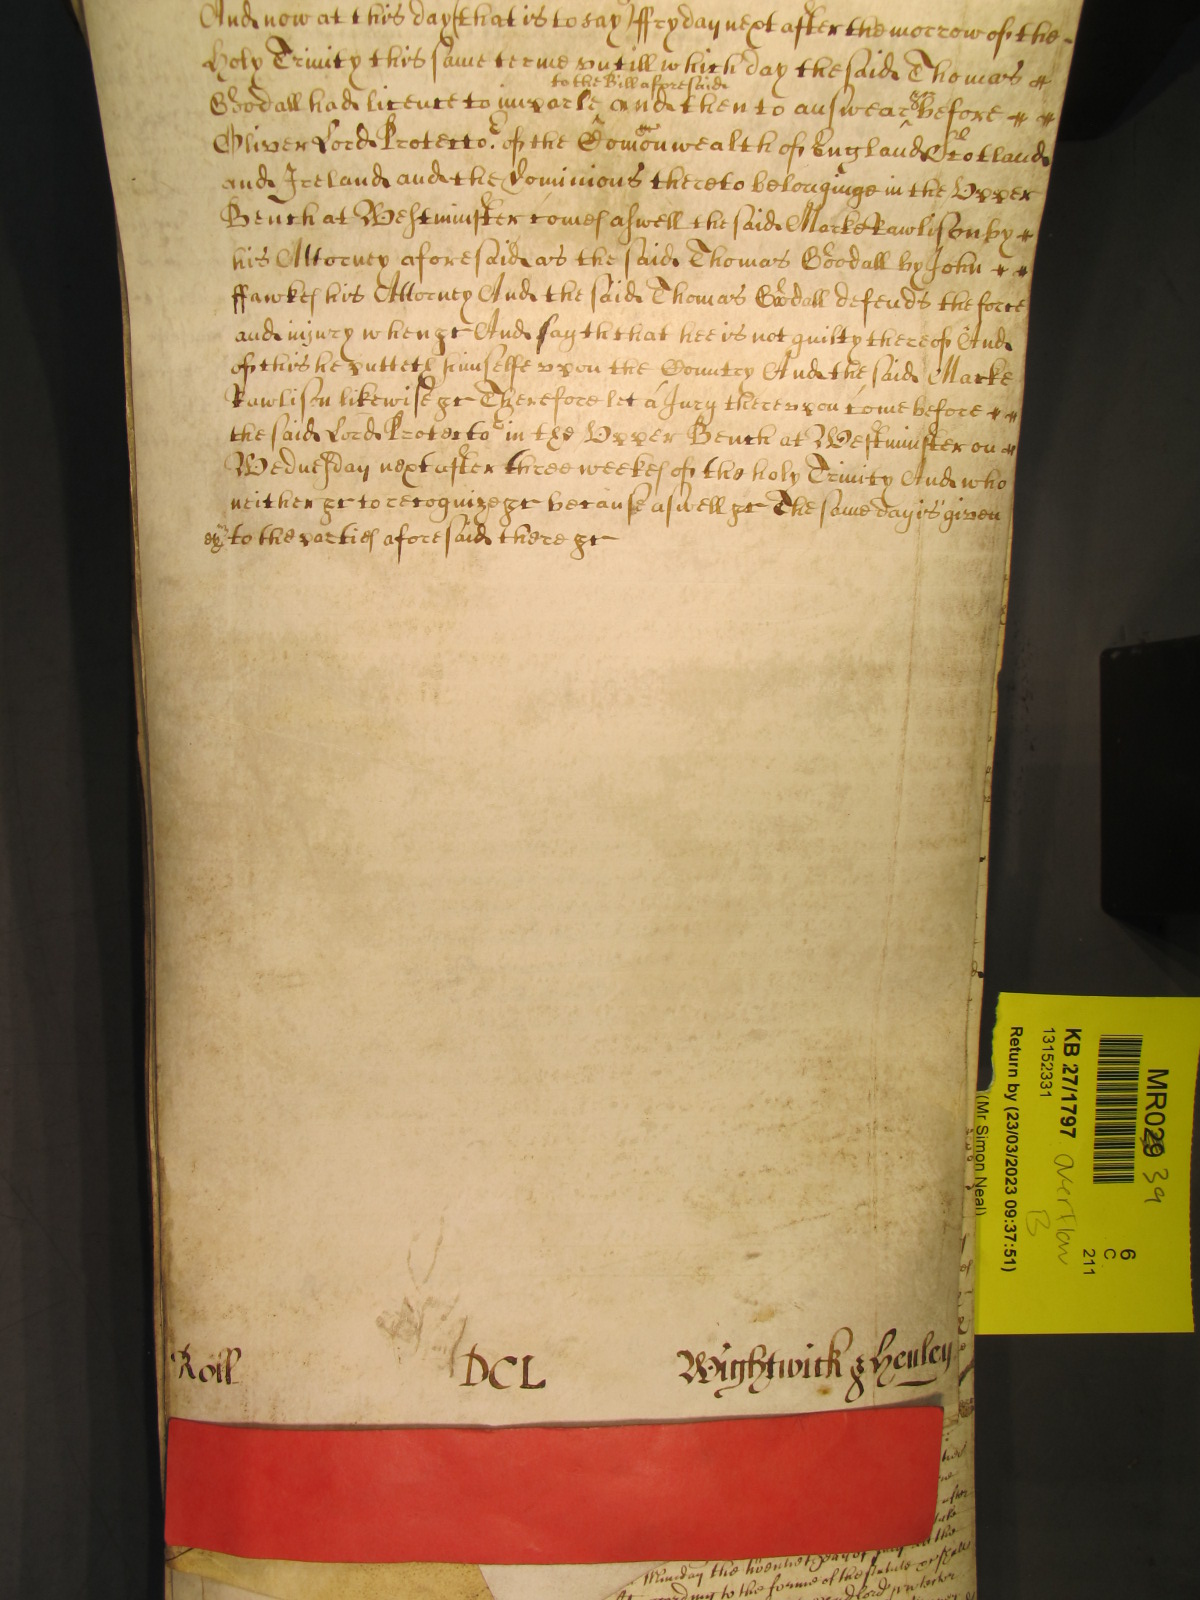 And now at this day (that is to say) ffryday next after the morrow of the
Holy Trinity this same terme untill which day the said Thomas
to the Bill aforesaid
Goodall had licence to imparle and then to answear &c Before
Oliver Lord Protector of the Comonwealth of England Scotland
and Ireland and the Dominions thereto belonginge in the Upper
Bench at Westminster comes aswell the said Marke Rawlison by
his Attorney aforesaid as the said Thomas Goodall by John
ffawkes his Attorney And the said Thomas Goodall defends the force
and injury when &c And sayth that hee is not guilty thereof And
of this he putteth himselfe upon the Country And the said Marke
Rawlison likewise &c Therefore let a Jury thereupon come before
the said Lord Protector in the Upper Bench at Westminster on
Wednesday next after three weekes of the holy Trinity And who
neither &c to recognize &c because aswell &c The same day is given
to the parties aforesaid there &c
Roll DCL Wightwick & Henley
MR029 39
6
C
211
KB 27/1797 overflow
B
13152331
Return by (23/03/2023 09:37:51)
(Mr Simon Neal)
Munday the twentieth day of
to the forme of the statute
lord protector